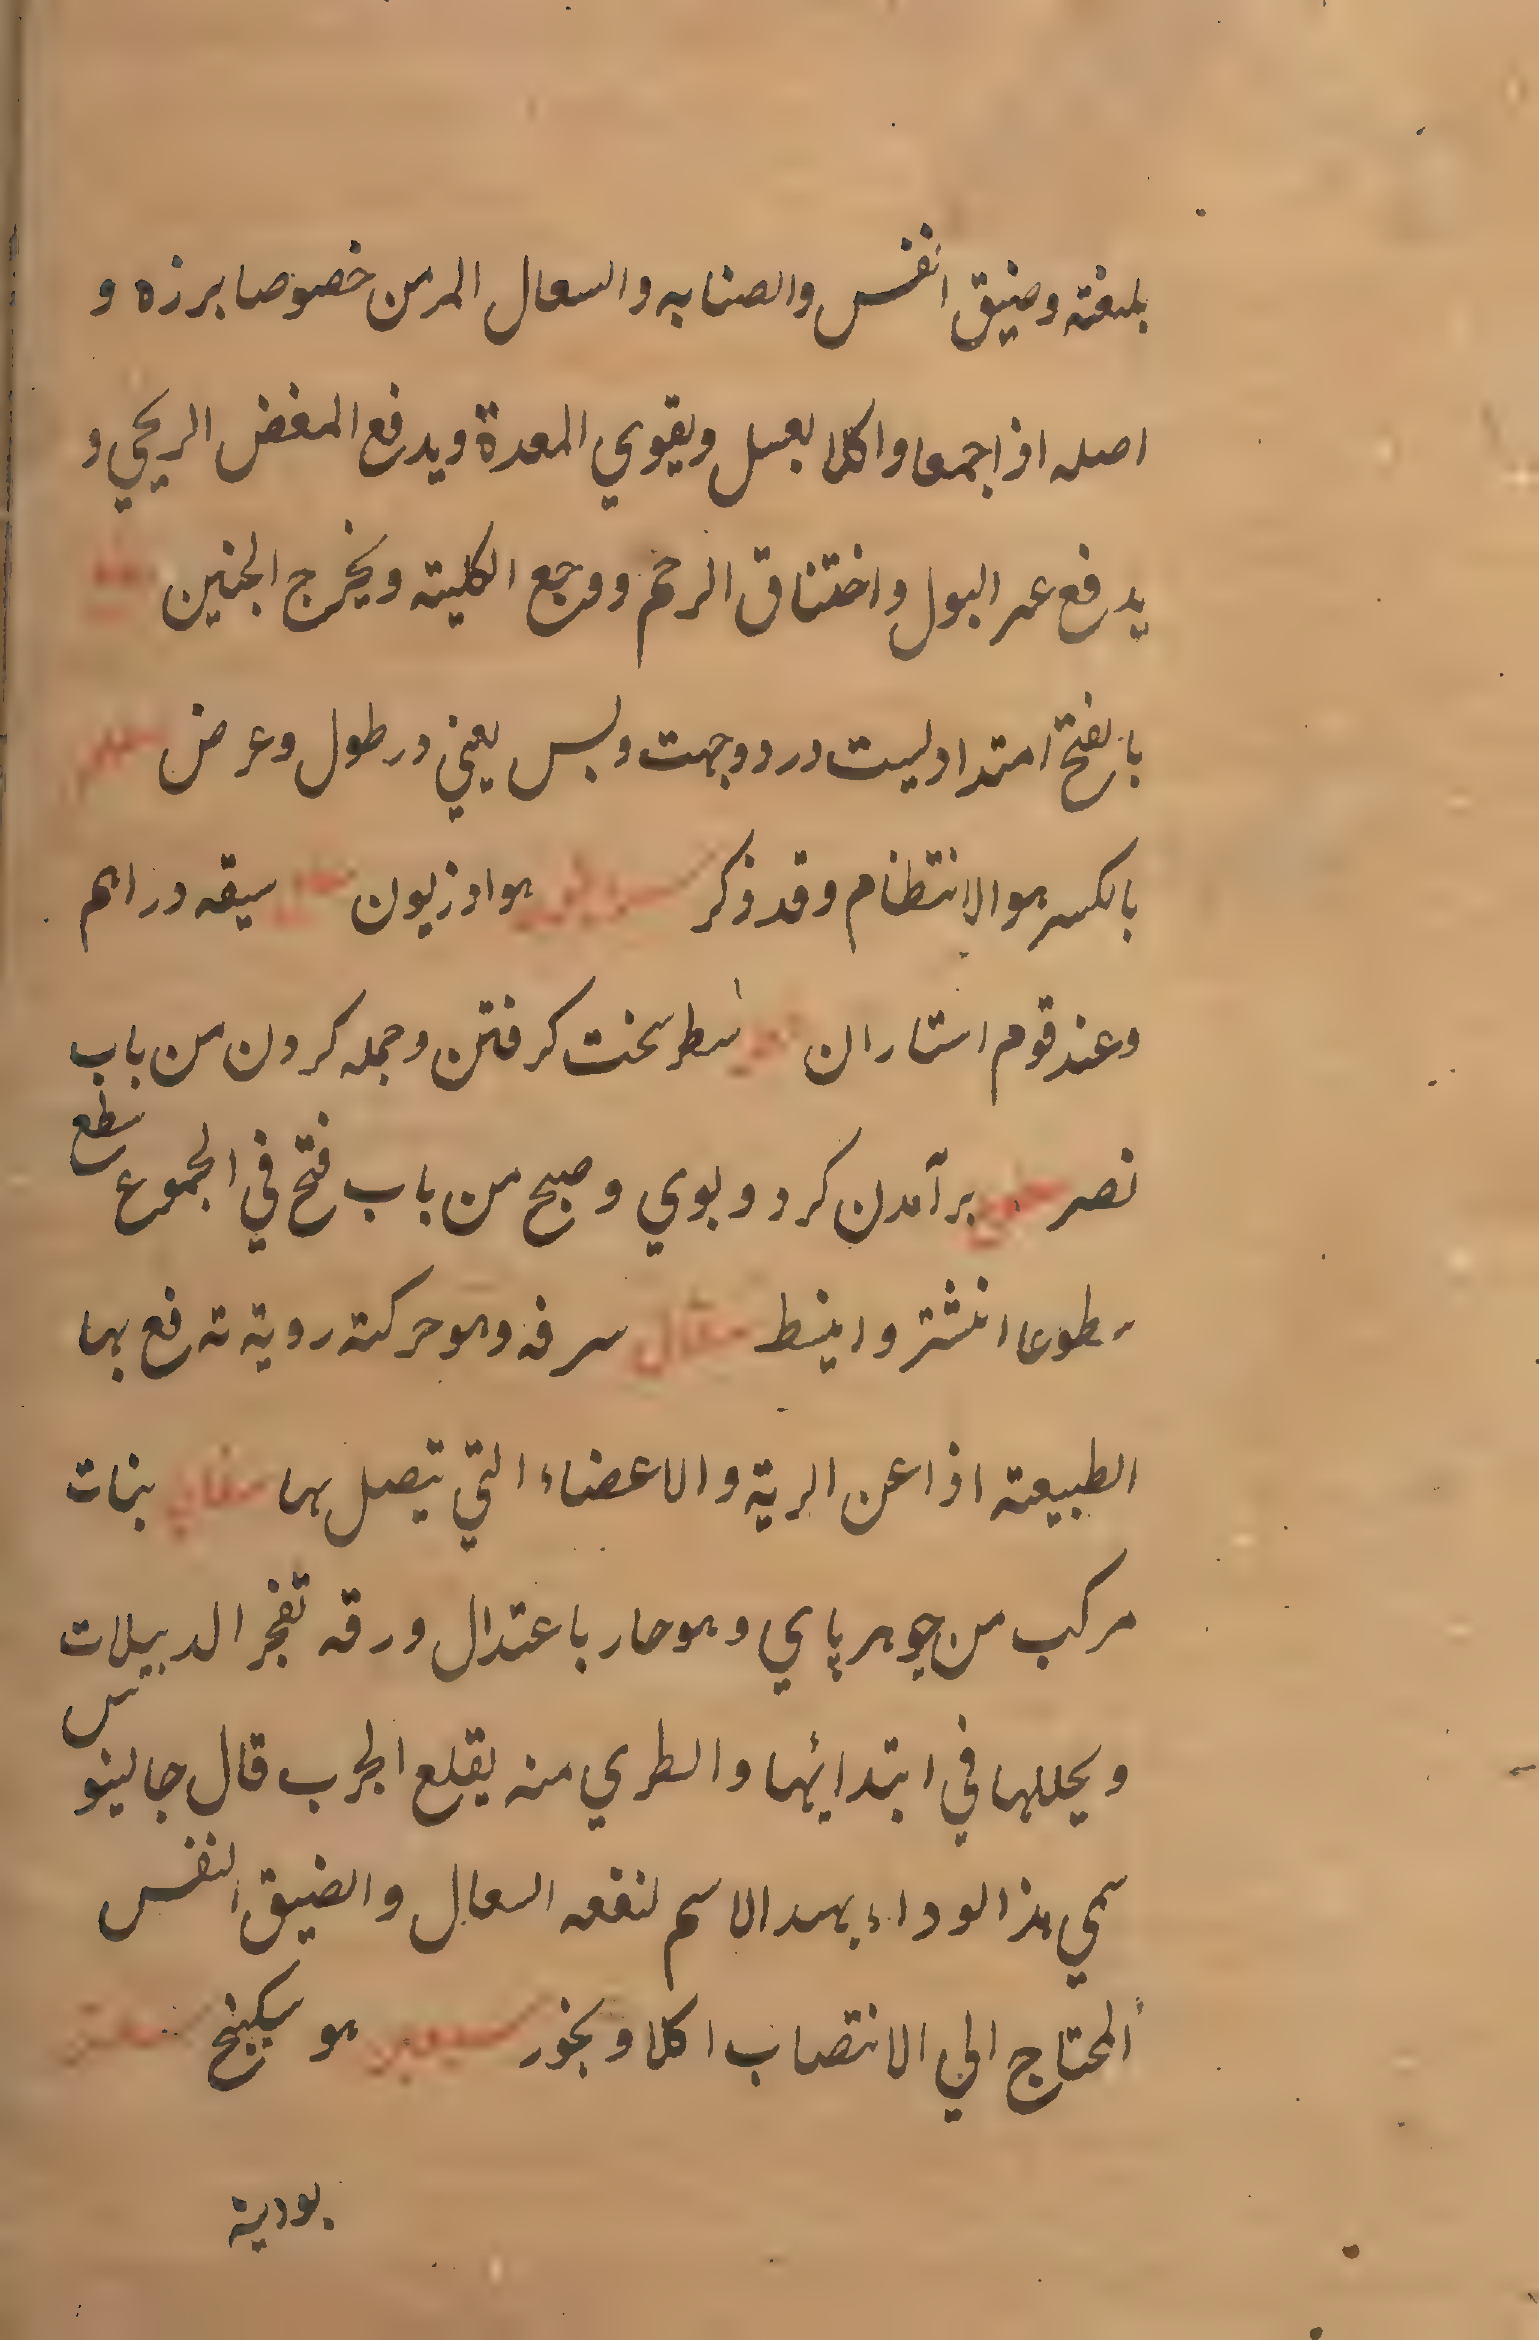 بلغتة وضيق النفس والصنابه والسعال المزمن خصوصا برزه و
اصله اذ اجمعا واكلا بعسل ويقوي المعدة ويدفع المغض الريحي و
يدفع عسر البول واختناق الرحم ووجع الكليته ويخرج الجنين
بالفتح امتداديست در دوجهت وبس يعني در طول وعرض
بالكسر هو الانتظام وقد ذكر هو اوزيون سيقه دراهم
وعند قوم استاران سطر سخت كرفتن وحمله كردن من باب
نصر سطوع برآمدن كرد وبوي وصبح من باب فتح في المجموع سطع
سطوعا انتشر وانبسط سعال سرفه وهو حركته روية تدفع بها
الطبيعته اذا عن الرية والاعضاء التي تتصل بها سعالي بنات
مركب من جوهر پاي وهو حار باعتدال ورقه تفجر الدبيلات
ويحللها في ابتدائها والطري منه يقلع الجرب قال جالينوس
سمي هذا لوداء بهد الاسم لنفعه السعال والضيق النفس
المحتاج الي الانتصاب اكلا وبخور هو سكبينج سعتر
بودينة